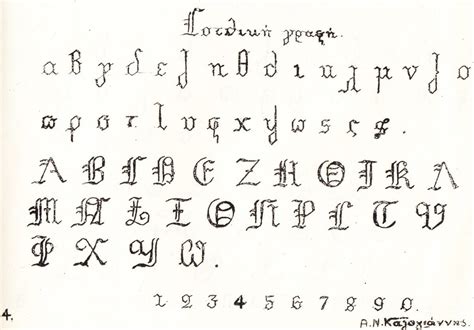 Γοτθική γραφή.
α β γ δ ε ζ η θ ι κ λ μ ν ξ ο
π ρ σ τ υ φ χ ψ ω ς
Α Β Γ Δ Ε Ζ Η Θ Ι Κ Λ
Μ Ν Ξ Ο Π Ρ Σ Τ Υ
Φ Χ Ψ Ω.
1 2 3 4 5 6 7 8 9 0.
4. Α.Ν.Καλογιάννης